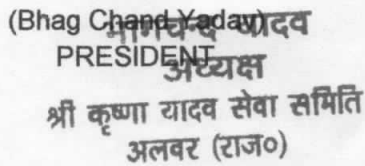 (Bhag Chand Yadav)
भागचन्द यादव
PRESIDENT
अध्यक्ष
श्री कृष्णा यादव सेवा समिति
अलवर (राज०)